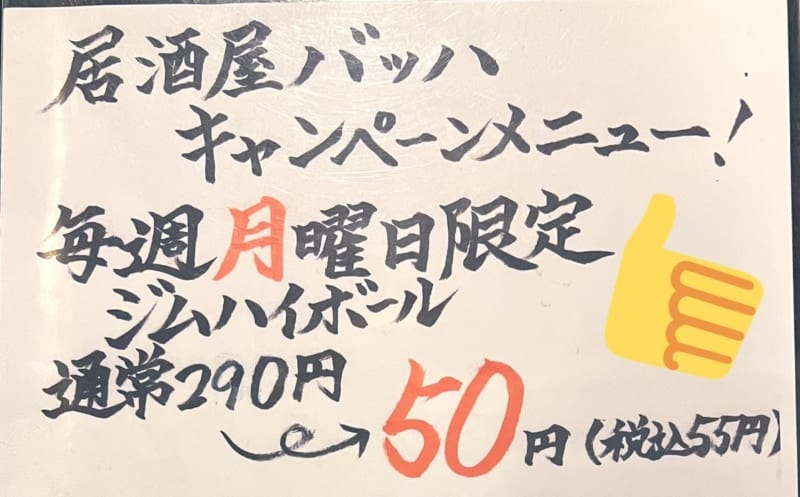 居酒屋バッハ
キャンペーンメニュー!
毎週月曜日限定
ジムハイボール
通常290円
50円(税込55円)